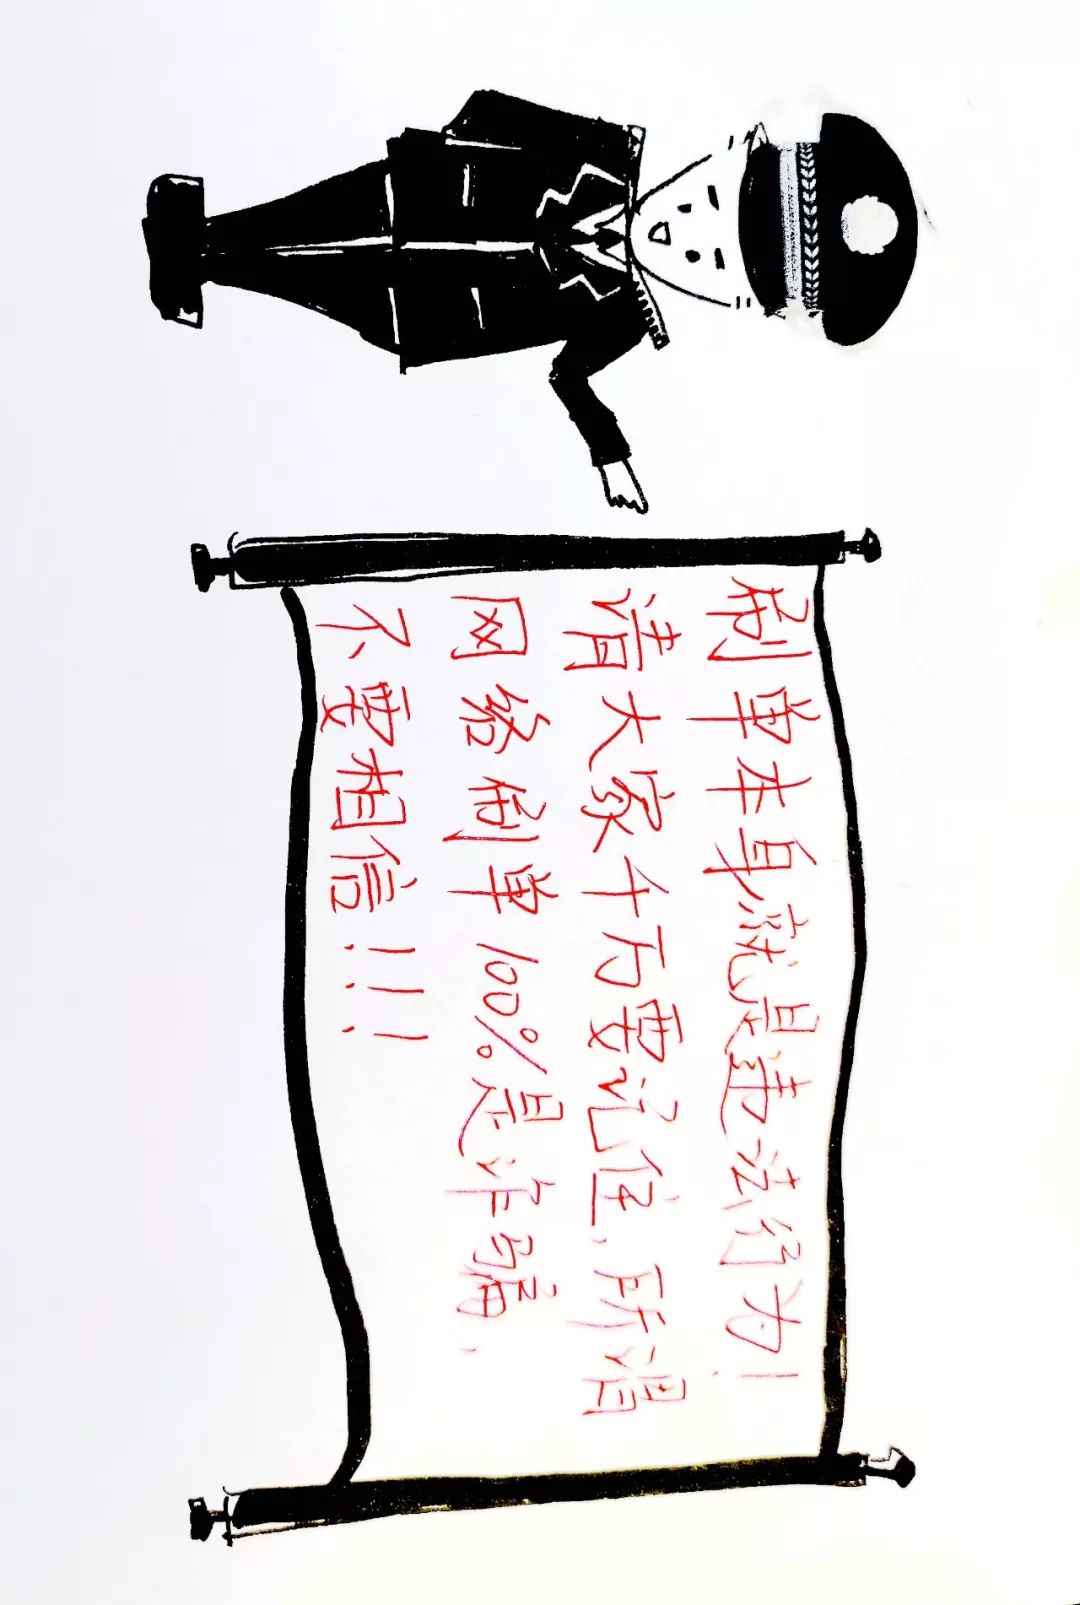 刷单本身就是违法行为！
请大家千万要记住，所谓
网络刷单100%是诈骗，
不要相信！！！